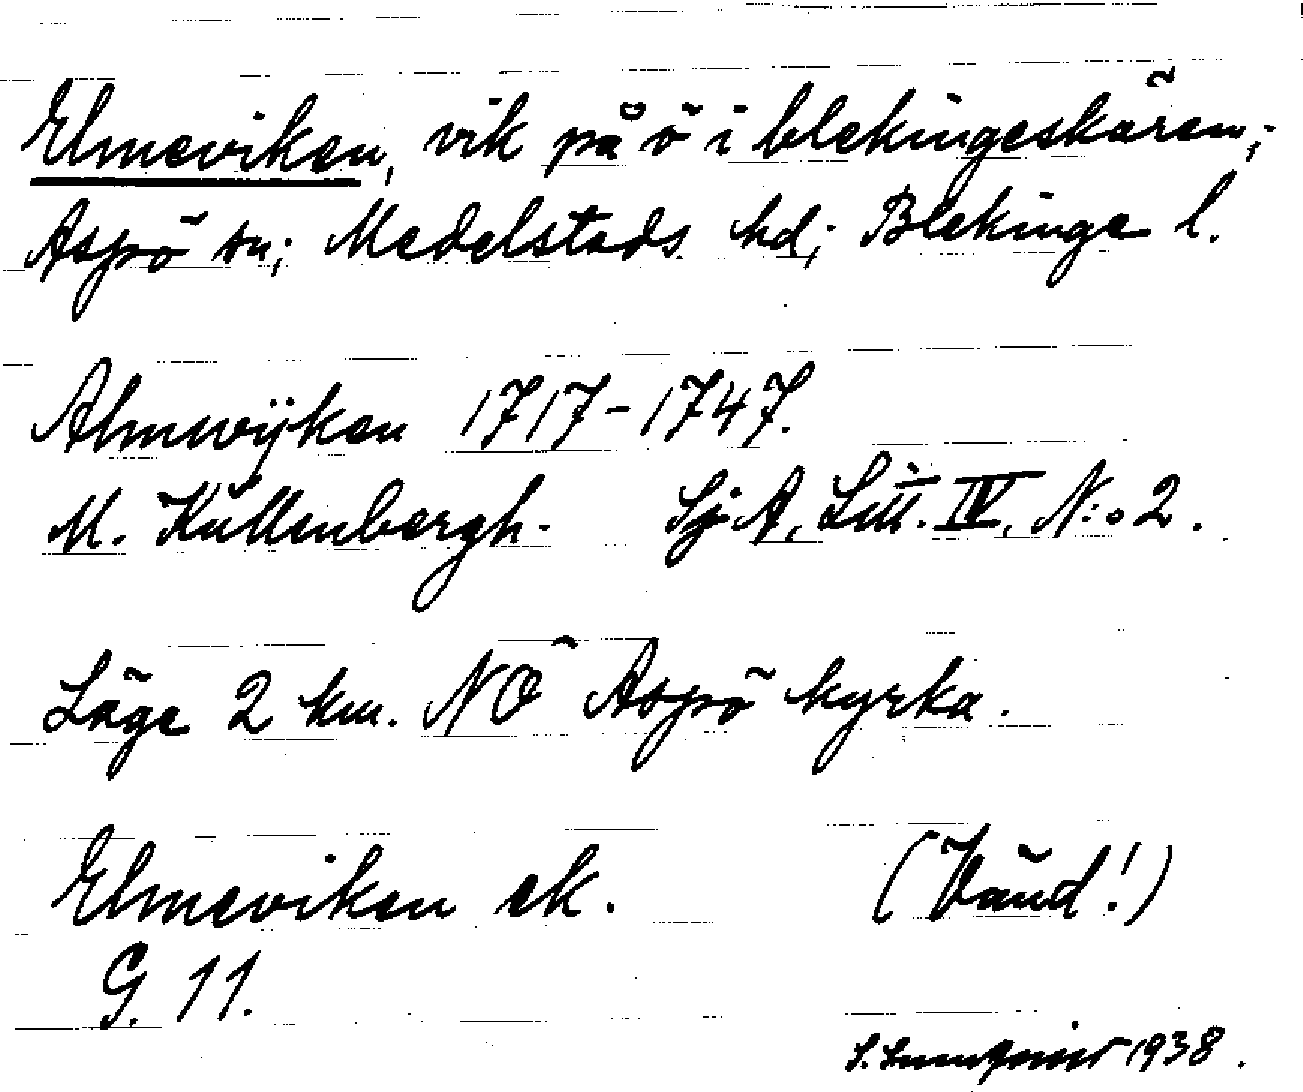 Elmeviken, vik på ö i blekingeskären;
Aspö sn; Medelstads hd; Blekinge l.
Almewijken 1717-1747.
M. Kullenbergh. Sj.A, Litt. IV, N:o 2.
Läge 2 km. NÖ Aspö kyrka.
Elmeviken ek. (Vänd!)
G. 11.
S. 1938.